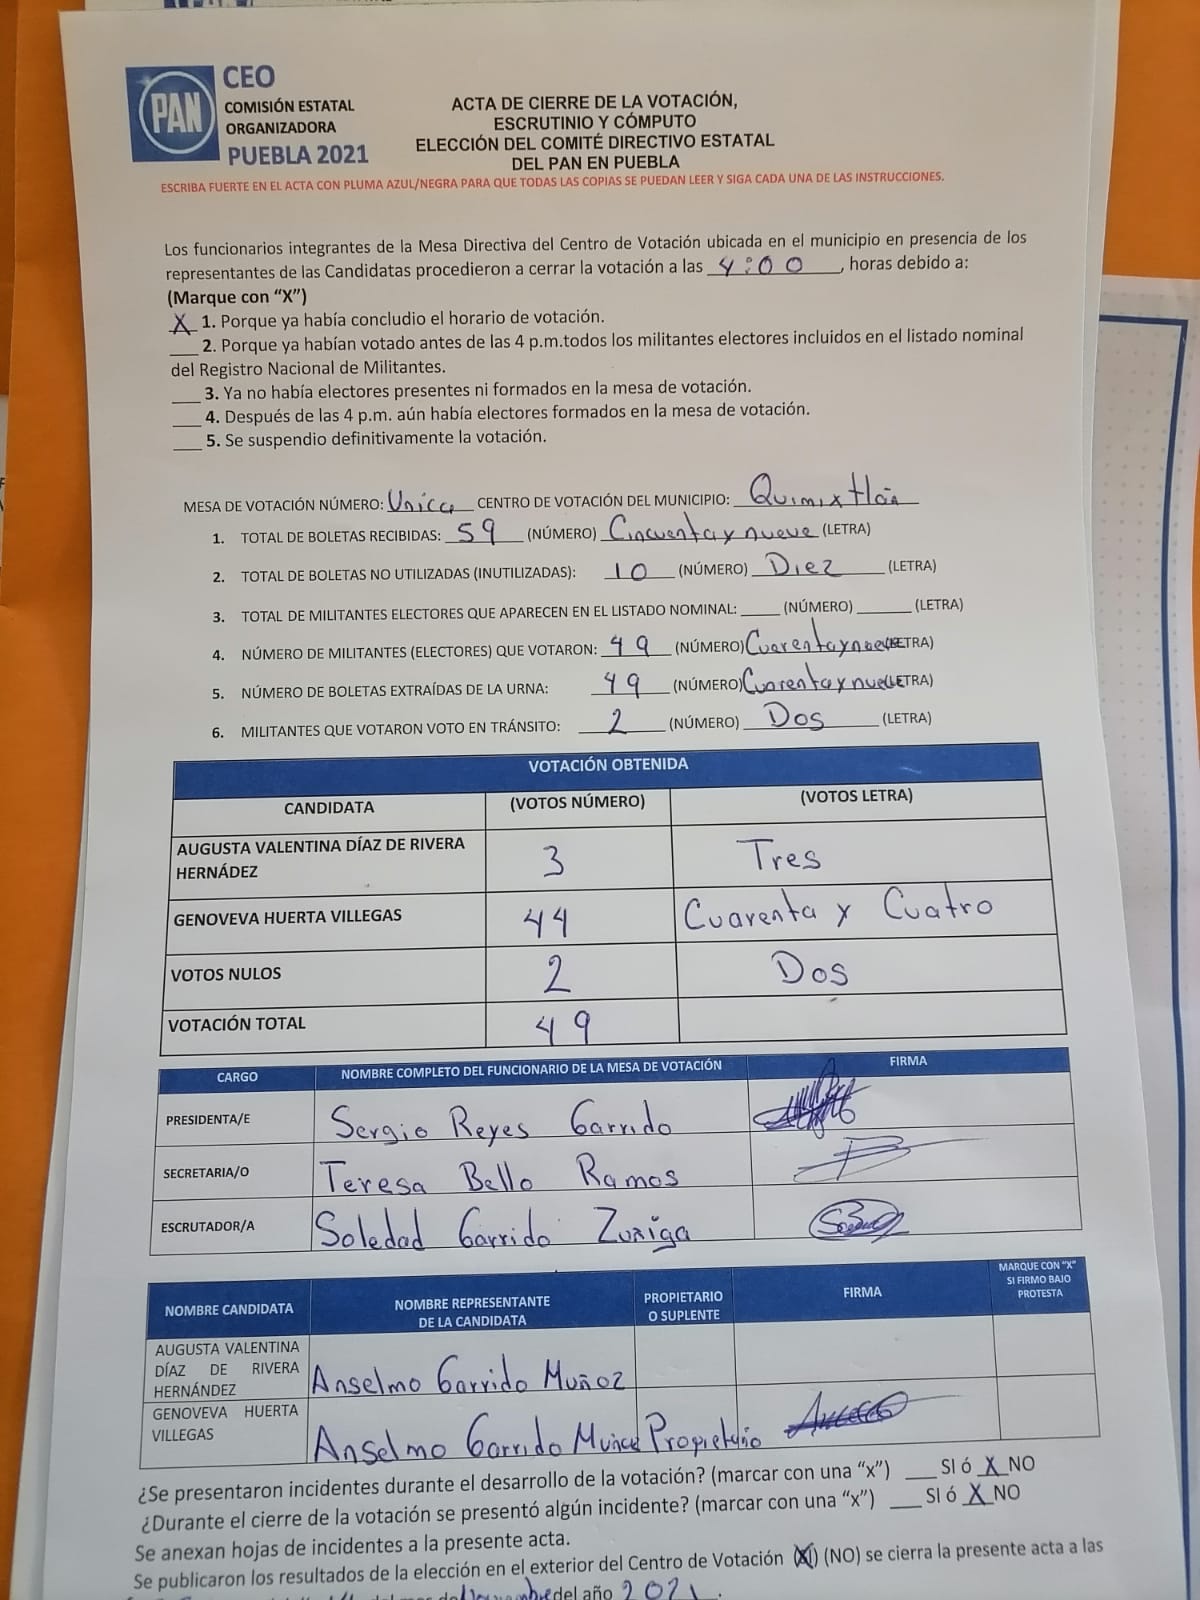 PAN
CEO
COMISIÓN ESTATAL
ORGANIZADORA
PUEBLA 2021
ACTA DE CIERRE DE LA VOTACIÓN,
ESCRUTINIO Y CÓMPUTO
ELECCIÓN DEL COMITÉ DIRECTIVO ESTATAL
DEL PAN EN PUEBLA
ESCRIBA FUERTE EN EL ACTA CON PLUMA AZUL/NEGRA PARA QUE TODAS LAS COPIAS SE PUEDAN LEER Y SIGA CADA UNA DE LAS INSTRUCCIONES.
Los funcionarios integrantes de la Mesa Directiva del Centro de Votación ubicada en el municipio en presencia de los
representantes de las Candidatas procedieron a cerrar la votación a las 4:00, horas debido a:
(Marque con “X”)
X 1. Porque ya había concludio el horario de votación.
___ 2. Porque ya habían votado antes de las 4 p.m.todos los militantes electores incluidos en el listado nominal
del Registro Nacional de Militantes.
___ 3. Ya no había electores presentes ni formados en la mesa de votación.
___ 4. Después de las 4 p.m. aún había electores formados en la mesa de votación.
___ 5. Se suspendio definitivamente la votación.
MESA DE VOTACIÓN NÚMERO: Unica CENTRO DE VOTACIÓN DEL MUNICIPIO: Quimixtlán
1. TOTAL DE BOLETAS RECIBIDAS: 59 (NÚMERO) Cincuenta y nueve (LETRA)
2. TOTAL DE BOLETAS NO UTILIZADAS (INUTILIZADAS): 10 (NÚMERO) Diez (LETRA)
3. TOTAL DE MILITANTES ELECTORES QUE APARECEN EN EL LISTADO NOMINAL: _____ (NÚMERO) _______ (LETRA)
4. NÚMERO DE MILITANTES (ELECTORES) QUE VOTARON: 49 (NÚMERO) Cuarenta y nueve (LETRA)
5. NÚMERO DE BOLETAS EXTRAÍDAS DE LA URNA: 49 (NÚMERO) Cuarenta y nueve (LETRA)
6. MILITANTES QUE VOTARON VOTO EN TRÁNSITO: 2 (NÚMERO) Dos (LETRA)
VOTACIÓN OBTENIDA
CANDIDATA (VOTOS NÚMERO) (VOTOS LETRA)
AUGUSTA VALENTINA DÍAZ DE RIVERA
HERNÁDEZ 3 Tres
GENOVEVA HUERTA VILLEGAS 44 Cuarenta y Cuatro
VOTOS NULOS 2 Dos
VOTACIÓN TOTAL 49
CARGO NOMBRE COMPLETO DEL FUNCIONARIO DE LA MESA DE VOTACIÓN FIRMA
PRESIDENTA/E Sergio Reyes Garrido
SECRETARIA/O Teresa Bello Ramos
ESCRUTADOR/A Soledad Garrido Zuñiga
NOMBRE CANDIDATA
NOMBRE REPRESENTANTE
DE LA CANDIDATA
PROPIETARIO
O SUPLENTE
FIRMA
MARQUE CON “X”
SI FIRMO BAJO
PROTESTA
AUGUSTA VALENTINA
DÍAZ DE RIVERA
HERNÁNDEZ
Anselmo Garrido Muñoz
GENOVEVA HUERTA
VILLEGAS
Anselmo Garrido Muñoz Propietario
¿Se presentaron incidentes durante el desarrollo de la votación? (marcar con una “x”) ___ SI ó X NO
¿Durante el cierre de la votación se presentó algún incidente? (marcar con una “x”) ___ SI ó X NO
Se anexan hojas de incidentes a la presente acta.
Se publicaron los resultados de la elección en el exterior del Centro de Votación (SI) (NO) se cierra la presente acta a las
Noviembre del año 2021.